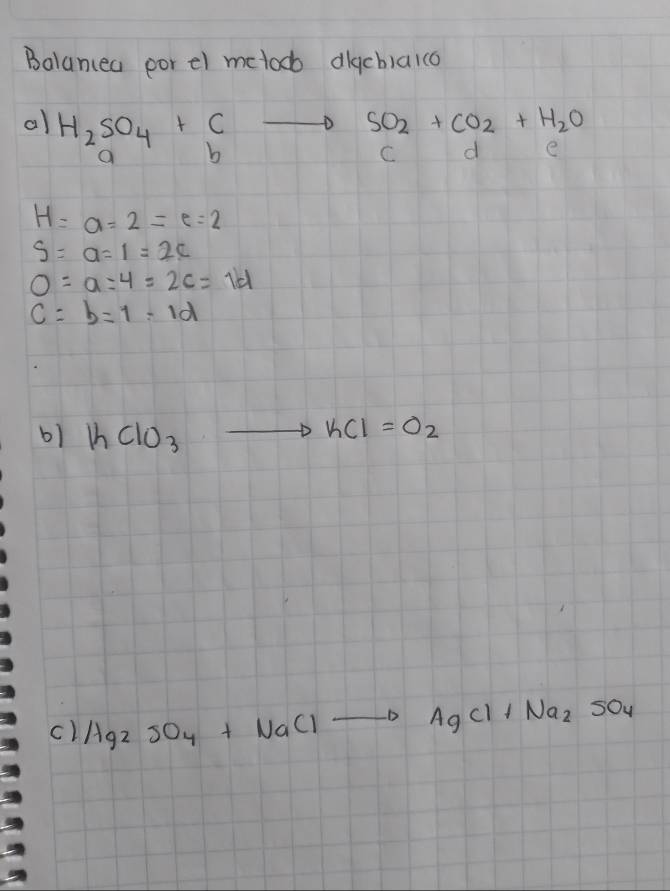 Balancea por el metodo algebraico
a) H₂SO₄ + C → SO₂ + CO₂ + H₂O
a b c d e
H = a = 2 = e = 2
S = a = 1 = 2c
O = a = 4 = 2c = 1d
C = b = 1 = 1d
b) KClO₃ → KCl = O₂
c) Ag₂ SO₄ + NaCl → AgCl + Na₂ SO₄